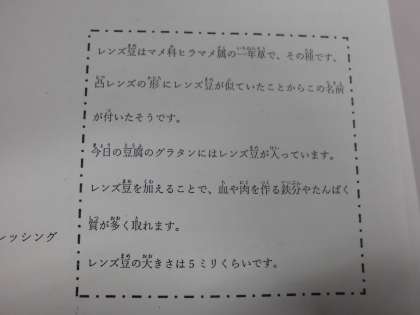 レンズ豆はマメ科ヒラマメ属の一年草で、その種です、
凸レンズの形にレンズ豆が似ていたことからこの名前
が付いたそうです。
今日の豆腐のグラタンにはレンズ豆が入っています。
レンズ豆を加えることで、血や肉を作る鉄分やたんぱく
質が多く取れます。
レッシング
レンズ豆の大きさは5ミリくらいです。